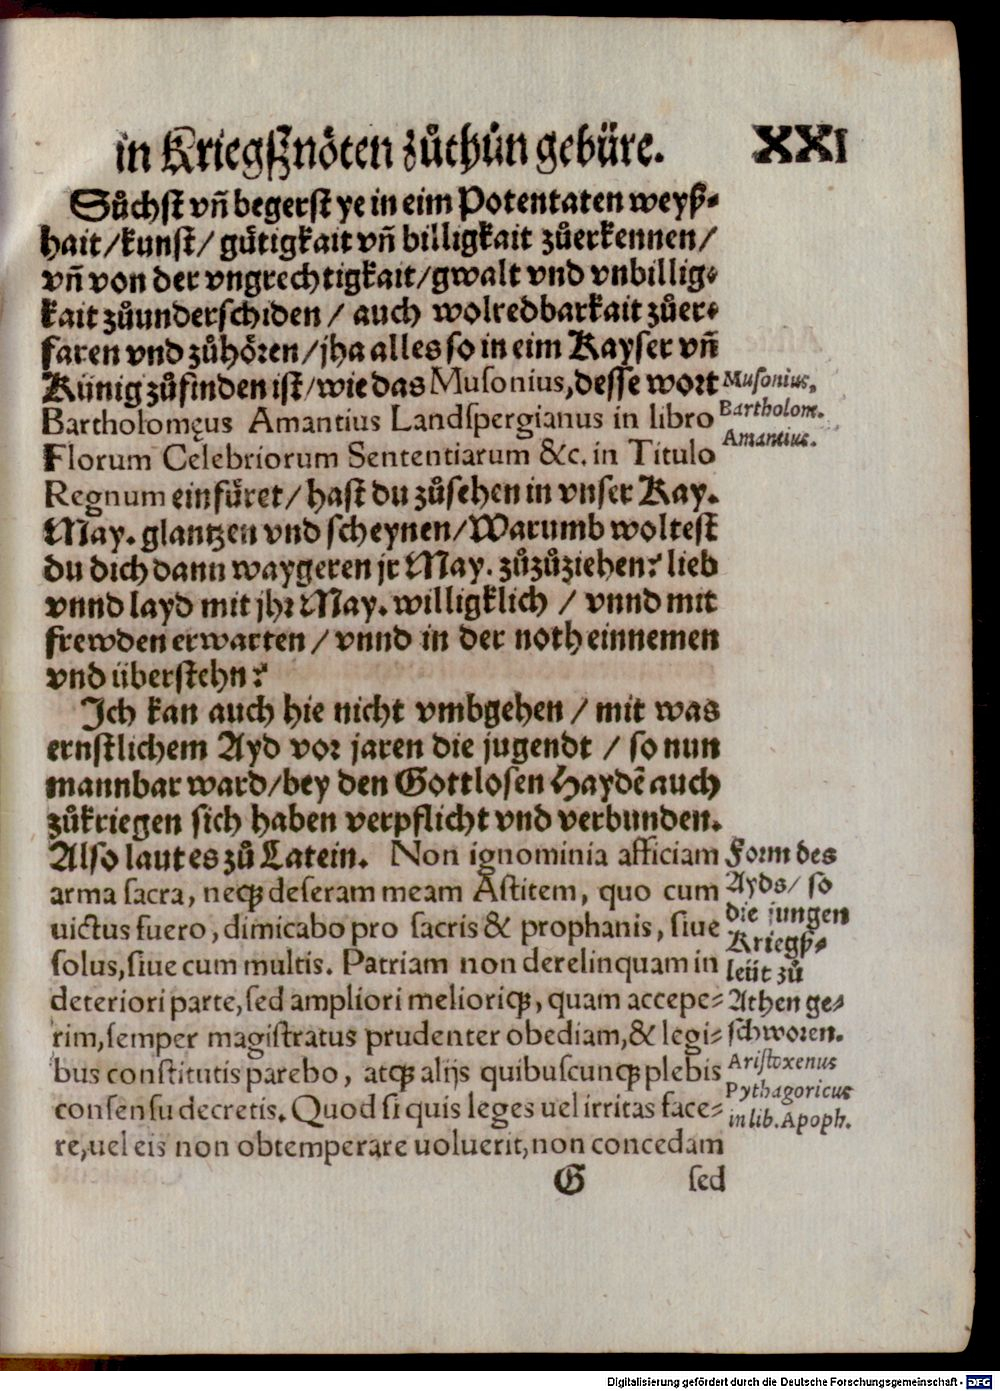 in Kriegßnöten zůthůn gebüre. XXI
Sůchst vñ begerst ye in eim Potentaten weyß⸗
hait/kunst/ gůtigkait vñ billigkait zůerkennen/
vñ von der vngrechtigkait/gwalt vnd vnbillig⸗
kait zůunderschiden / auch wolredbarkait zůer⸗
faren vnd zůhören/jha alles so in eim Kayser vñ
Künig zůfinden ist/wie das Musonius, desse wort
Musonius.
Bartholomęus Amantius Landspergianus in libro
Bartholom.
Amantius.
Florum Celebriorum Sententiarum &c. in Titulo
Regnum einfüret/ hast du zůsehen in vnser Kay.
May. glantzen vnd scheynen/Warumb woltest
du dich dann waygeren jr May. zůzůziehen? lieb
vnnd layd mit jhr May. willigklich / vnnd mit
frewden erwarten / vnnd in der noth einnemen
vnd überstehn?
Ich kan auch hie nicht vmbgehen / mit was
ernstlichem Ayd vor jaren die jugendt / so nun
mannbar ward/bey den Gottlosen Haydē auch
zůkriegen sich haben verpflicht vnd verbunden.
Also laut es zů Latein. Non ignominia afficiam
arma sacra, neqꝫ deseram meam Astitem, quo cum
uictus fuero, dimicabo pro sacris & prophanis, siue
solus, siue cum multis. Patriam non derelinquam in
deteriori parte, sed ampliori melioriqꝫ, quam accepe⸗
rim, semper magistratus prudenter obediam, & legi⸗
bus constitutis parebo, atqꝫ alijs quibuscunqꝫ plebis
consensu decretis. Quod si quis leges uel irritas face⸗
re, uel eis non obtemperare uoluerit, non concedam
Form des
Ayds/ so
die jungen
Kriegß⸗
leüt zů
Athen ge⸗
schworen.
Aristoxenus
Pythagoricus
in lib. Apoph.
G sed
Digitalisierung gefördert durch die Deutsche Forschungsgemeinschaft - DFG